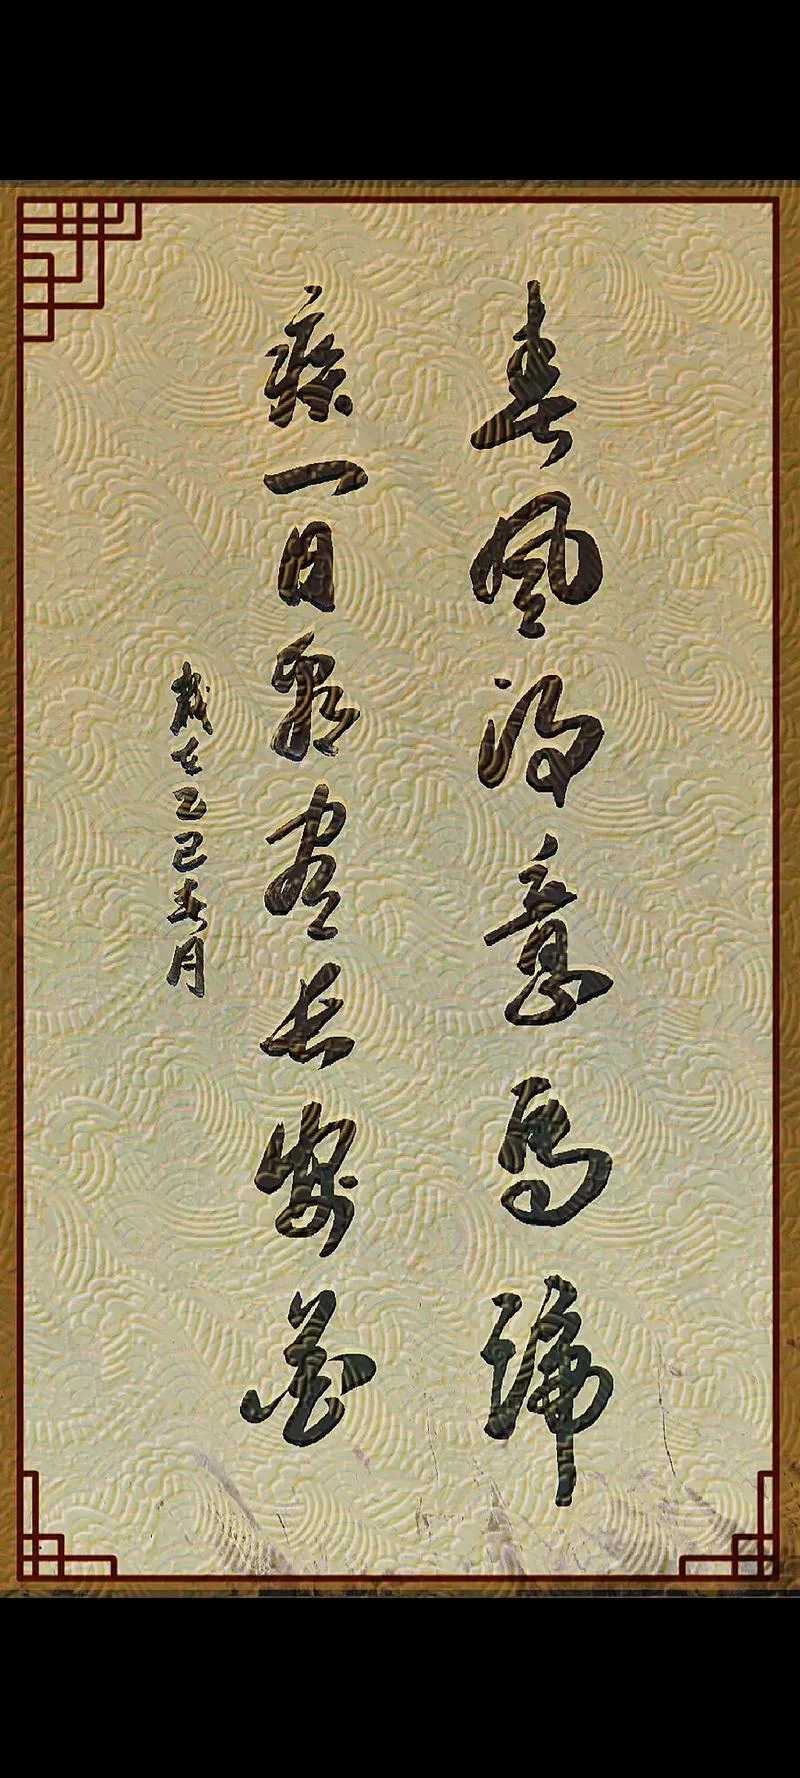 春風得意馬蹄
疾一日看盡長安花
歲在乙巳春月